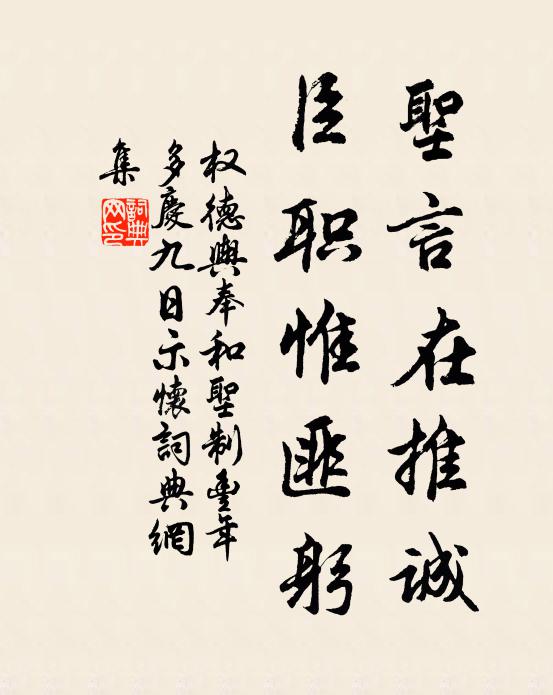 聖言在推誠
臣职惟匪躬
权德輿奉和聖制豊年
多慶九日示懷詞典網
集
詞典网印